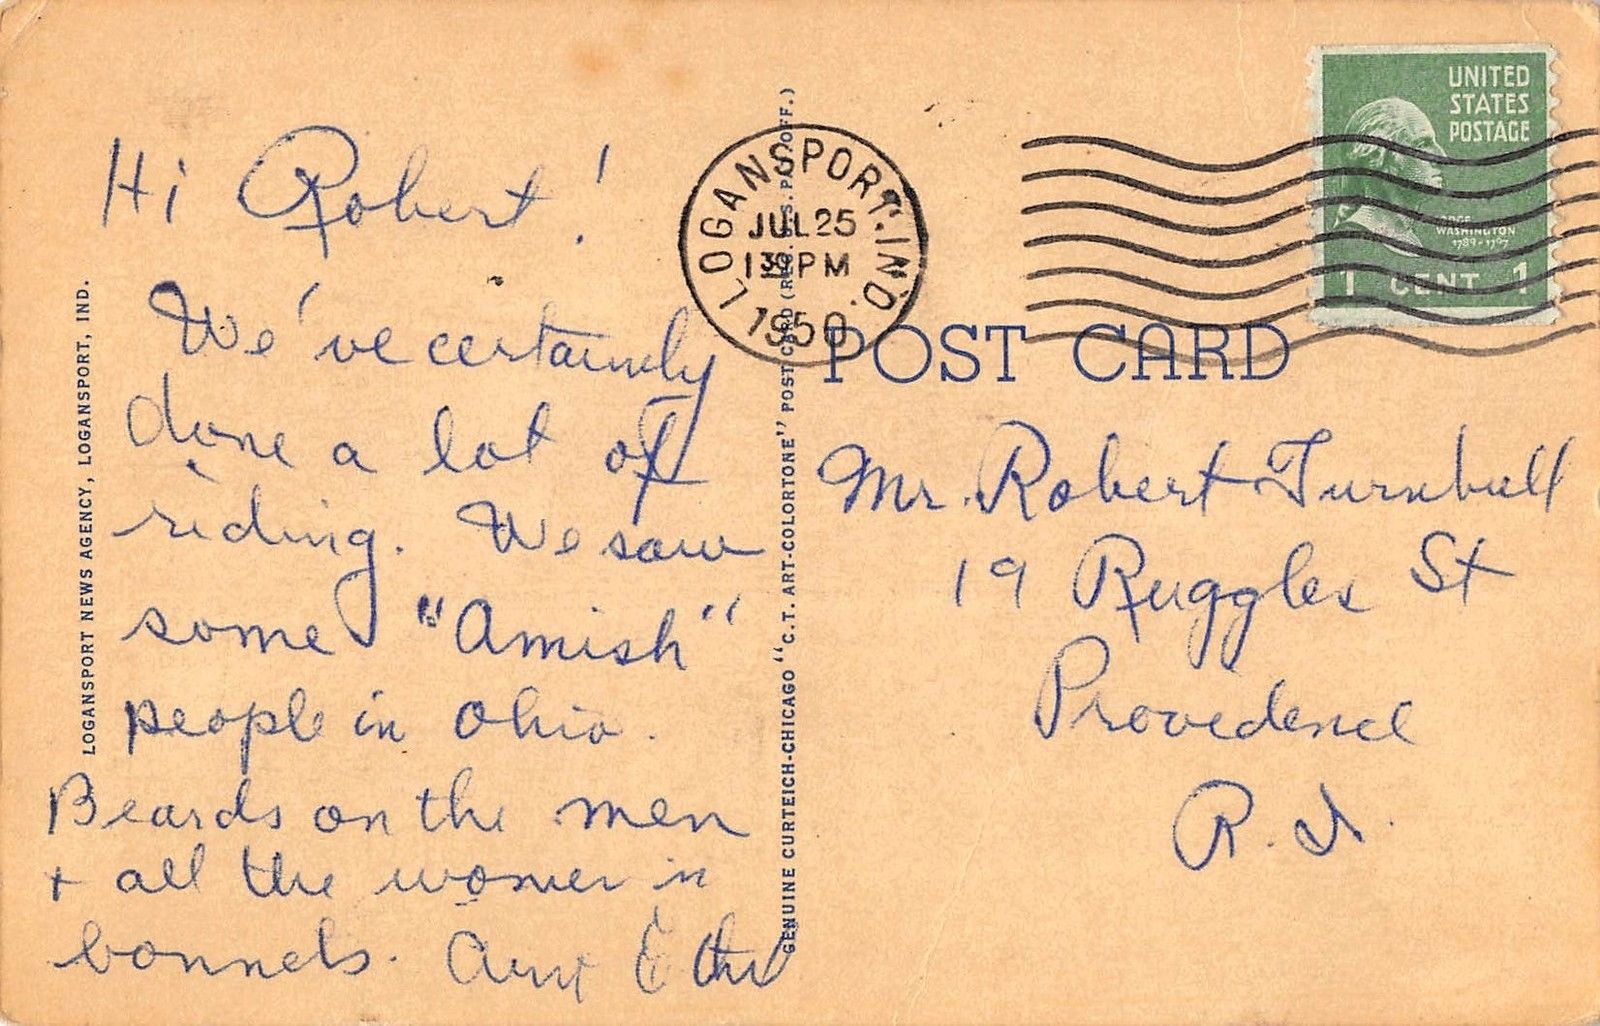 Hi Robert!
We've certainly
done a lot of
riding. We saw
some "Amish"
people in Ohio.
Beards on the men
+ all the women in
bonnets. Aunt Ethel
LOGANSPORT NEWS AGENCY, LOGANSPORT, IND.
GENUINE CURTEICH-CHICAGO "C.T. ART-COLORTONE" POST CARD (REG. U.S. PAT. OFF.)
LOGANSPORT, IND.
JUL 25
PM
1950
UNITED
STATES
POSTAGE
WASHINGTON
1789-1797
1 CENT 1
POST CARD
Mr. Robert Turnbull
19 Ruggles St
Providence
R.I.